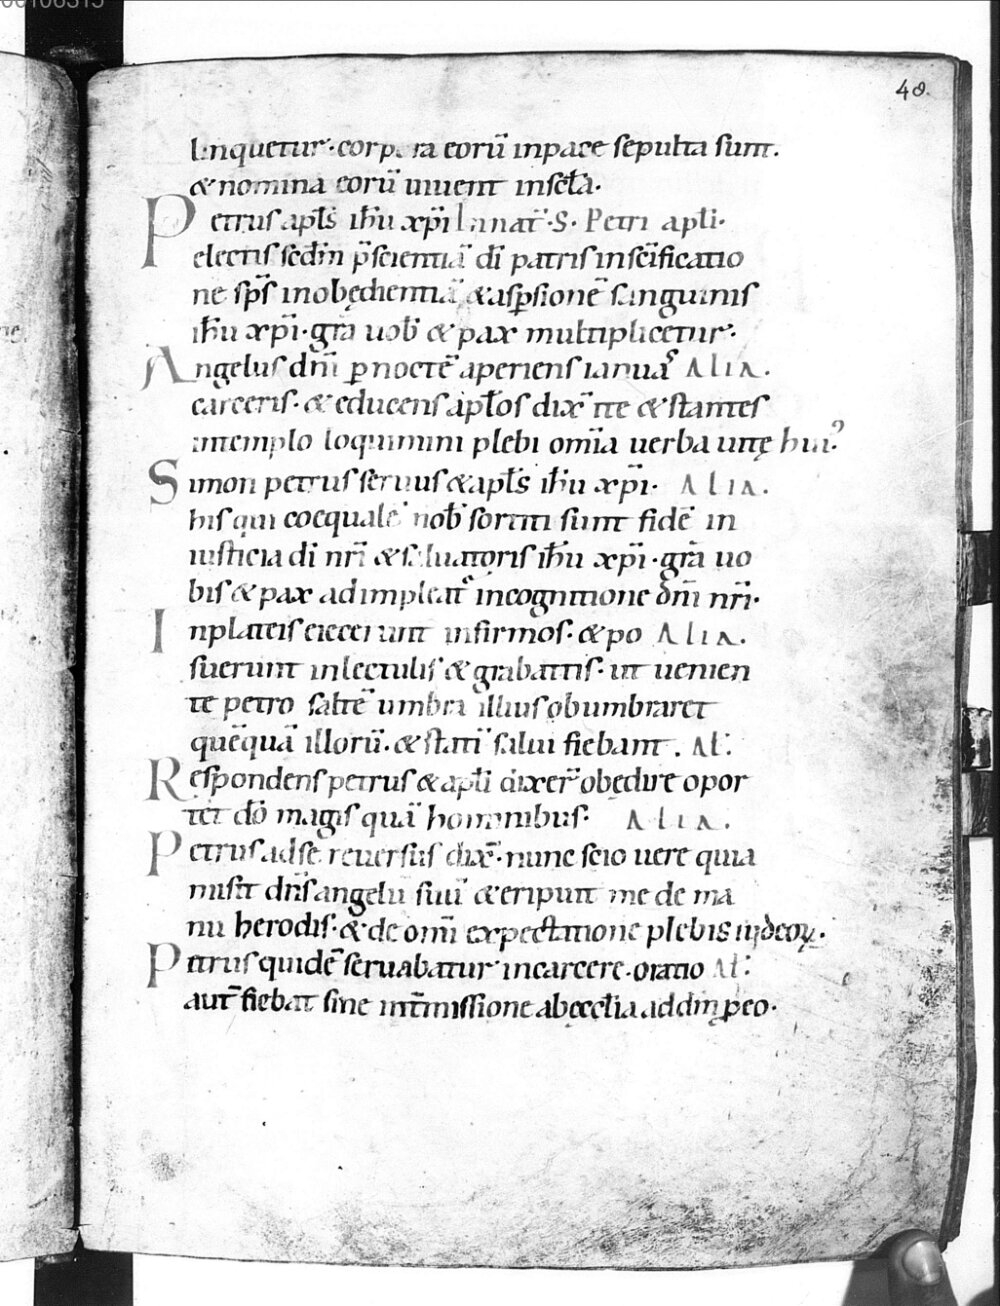 48.
linquetur· corpora eorū inpace sepulta sunt.
& nomina eorū uiuent insc̄la·
Petrus apl̄s ih̄u xp̄i In nat̄· S· Petri apl̄i·
electis sc̄dm p̄scientiā dī patris insc̄ificatio
ne sp̄s inobędientiā &asp̄sionē sanguinis
ih̄u xp̄i· gr̄a uob̄ & pax multiplicetur·
Angelus dn̄i ꝑ noctē aperiens ianuas Alia.
carceris· & educens apl̄os dix̄ ite & stantes
intemplo loquimini plebi om̄ia uerba uitę hui᾽·
Simon petrus seruus &apl̄s ih̄u xp̄i· Alia.
his qui coequalē nob̄ sortiti sunt fidē in
iusticia dī nr̄i & saluatoris ih̄u xp̄i· gr̄a uo
bis & pax adimpleat᾽ incognitione dn̄i nr̄i·
Inplateis eiecerunt infirmos· & po Alia.
suerunt inlectulis & grabattis· ut uenien
te petro saltē umbra illius obumbraret
quēquā illorū· & statī salui fiebant. Al̄:
Respondens petrus & apl̄i dixer̄ obędire opor
tet dō magis quā hominibus· Alia.
Petrus adse reuersus dix̄· nunc scio uere quia
misit dn̄s angelū suū & eripuit me de ma
nu herodis· & de om̄i expectatione plebis iudeoꝝ·
Petrus quidē seruabatur incarcere· oratio Al̄:
aut̄ fiebat sine int̄missione abęccl̄ia addm̄ ꝑeo·